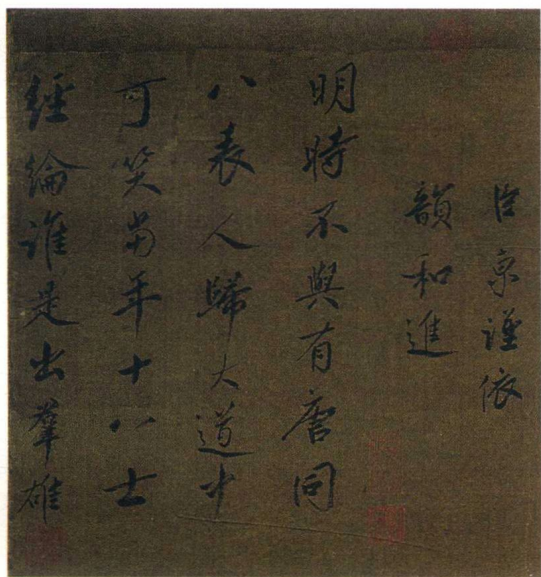 臣京謹依
韻和進
明時不與有唐同
八表人歸大道中
可笑當年十八士
經綸誰是出羣雄